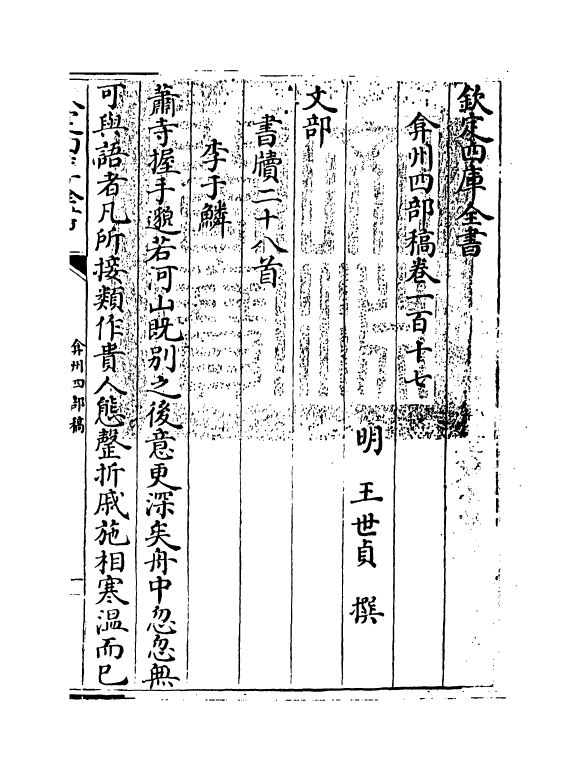 欽定四庫全書
弇州四部稿卷一百十七
明 王世貞 撰
文部
書牘二十八首
李于鱗
蕭寺握手邈若河山既別之後意更深矣舟中忽忽無
可與語者凡所接類作貴人態罄折戚施相寒溫而已
弇州四部稿
一